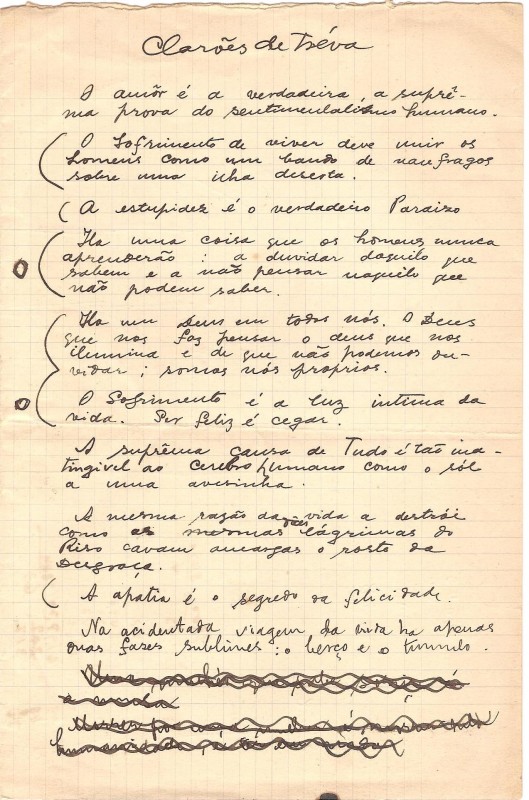 Clarões de Tréva
O amôr é a verdadeira, a suprê-
ma prova do sentimentalismo humano.
O Sofrimento de viver deve unir os
homens como um bando de naufragos
sobre uma ilha deserta.
A estupidez é o verdadeiro Paraizo
Ha uma coisa que os homens nunca
aprenderão: a duvidar daquilo que
sabem e a não pensar naquilo que
não podem saber.
Ha um Deus em todos nós. O Deus
que nos faz pensar o deus que nos
ilumina e de que não podemos du-
vidar; somos nós proprios.
O Sofrimento é a luz intima da
vida. Ser feliz é cegar.
A suprêma causa de Tudo é tão ina-
tingivel ao Cerebro humano como o sól
a uma avesinha.
A mesma razão da vida a destrói
como as mesmas lágrimas do
Riso cavam amargas o rosto da
Desgraça.
A apatia é o segredo da felicidade.
Na acidentada viagem da vida ha apenas
duas fazes sublimes: o berço e o tumulo.